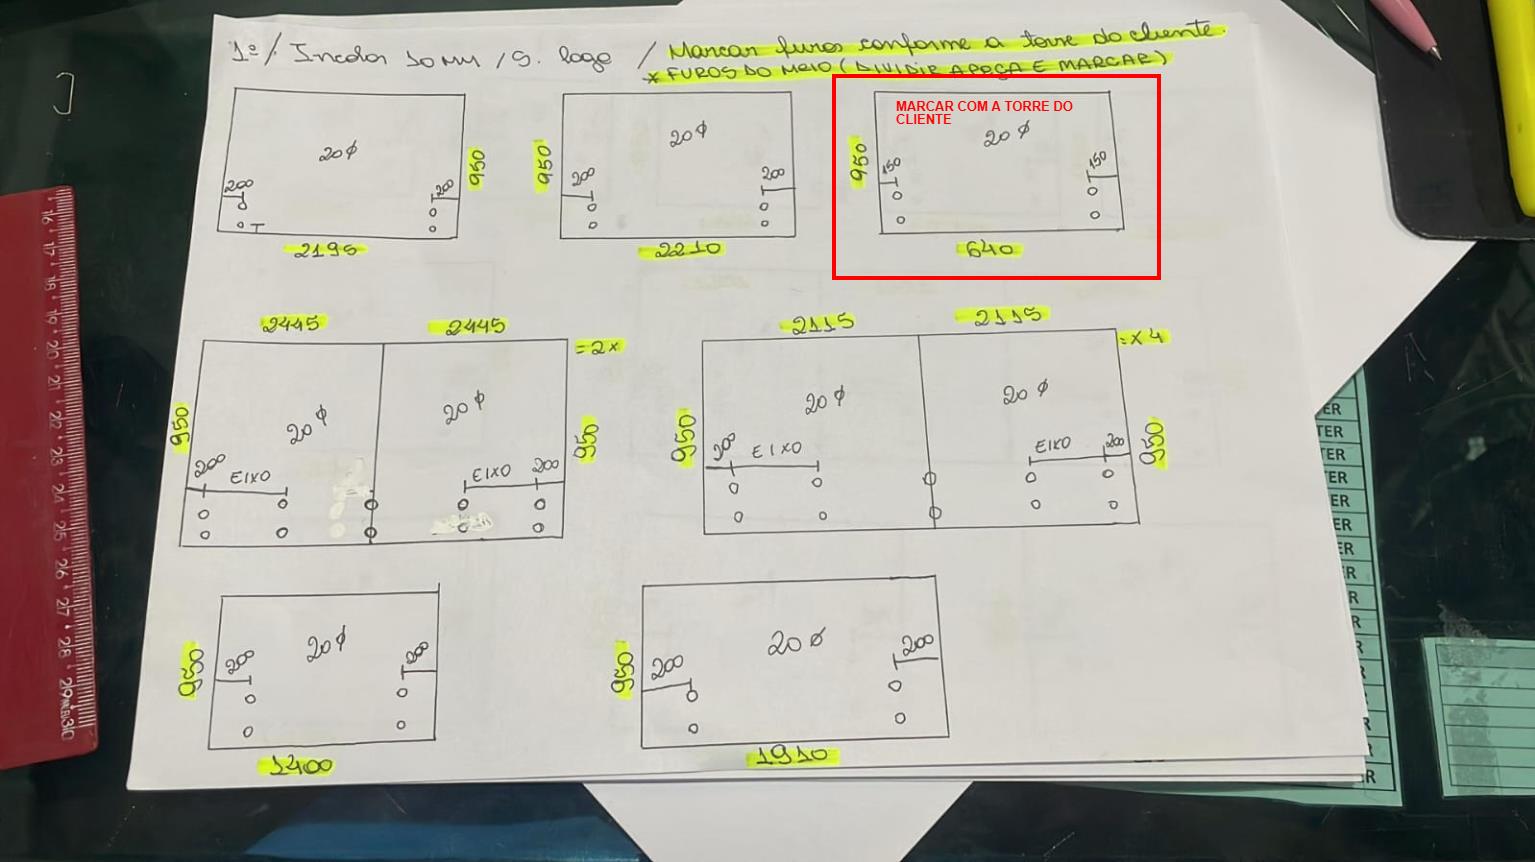 1º / Incolor 10 MM / S. logo / Marcar furos conforme a torre do cliente.
* FUROS DO MEIO (DIVIDIR A PEÇA E MARCAR)
MARCAR COM A TORRE DO
CLIENTE
20 ϕ
950
200
200
2195
20 ϕ
950
200
200
2210
20 ϕ
950
150
150
640
2445
2445
= 2x
950
20 ϕ
20 ϕ
950
200
EIXO
EIXO
200
2115
2115
= x 4
950
20 ϕ
20 ϕ
950
200
EIXO
EIXO
200
950
20 ϕ
200
200
1400
950
20 ϕ
200
200
1910
16 17 18 19 20 21 22 23 24 25 26 27 28 29 30
ER
TER
ER
TER
ER
ER
ER
ER
ER
R
R
R